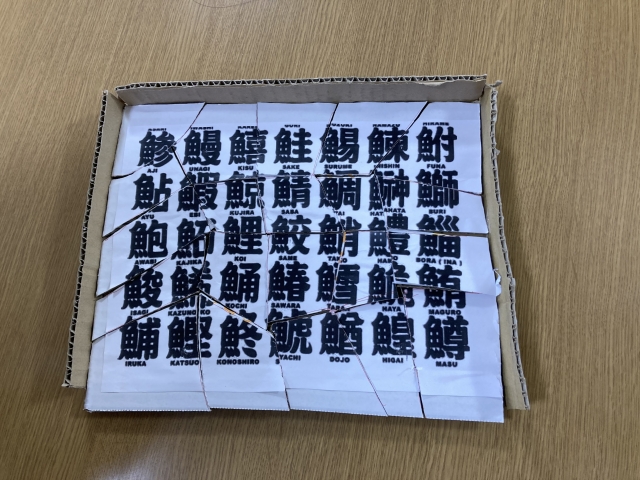 鯵 鰻 鱚 鮭 鯣 鰊 鮒
AJI UNAGI KISU SAKE SURUME NISHIN FUNA
鮎 鰕 鯨 鯖 鯛 鰰 鰤
AYU EBI KUJIRA SABA TAI HATAHATA BURI
鮑 鮖 鯉 鮫 鮹 鱧 鯔
AWABI KAJIKA KOI SAME TAKO HAMO BORA (INA)
鮻 鯒 鰆 鱈 鮠 鮪
ISAGI KAZUNOKO KOCHI SAWARA TARA HAYA MAGURO
鯆 鰹 鮗 鯱 鰌 鰉 鱒
IRUKA KATSUO KONOSHIRO SYACHI DOJO HIGAI MASU